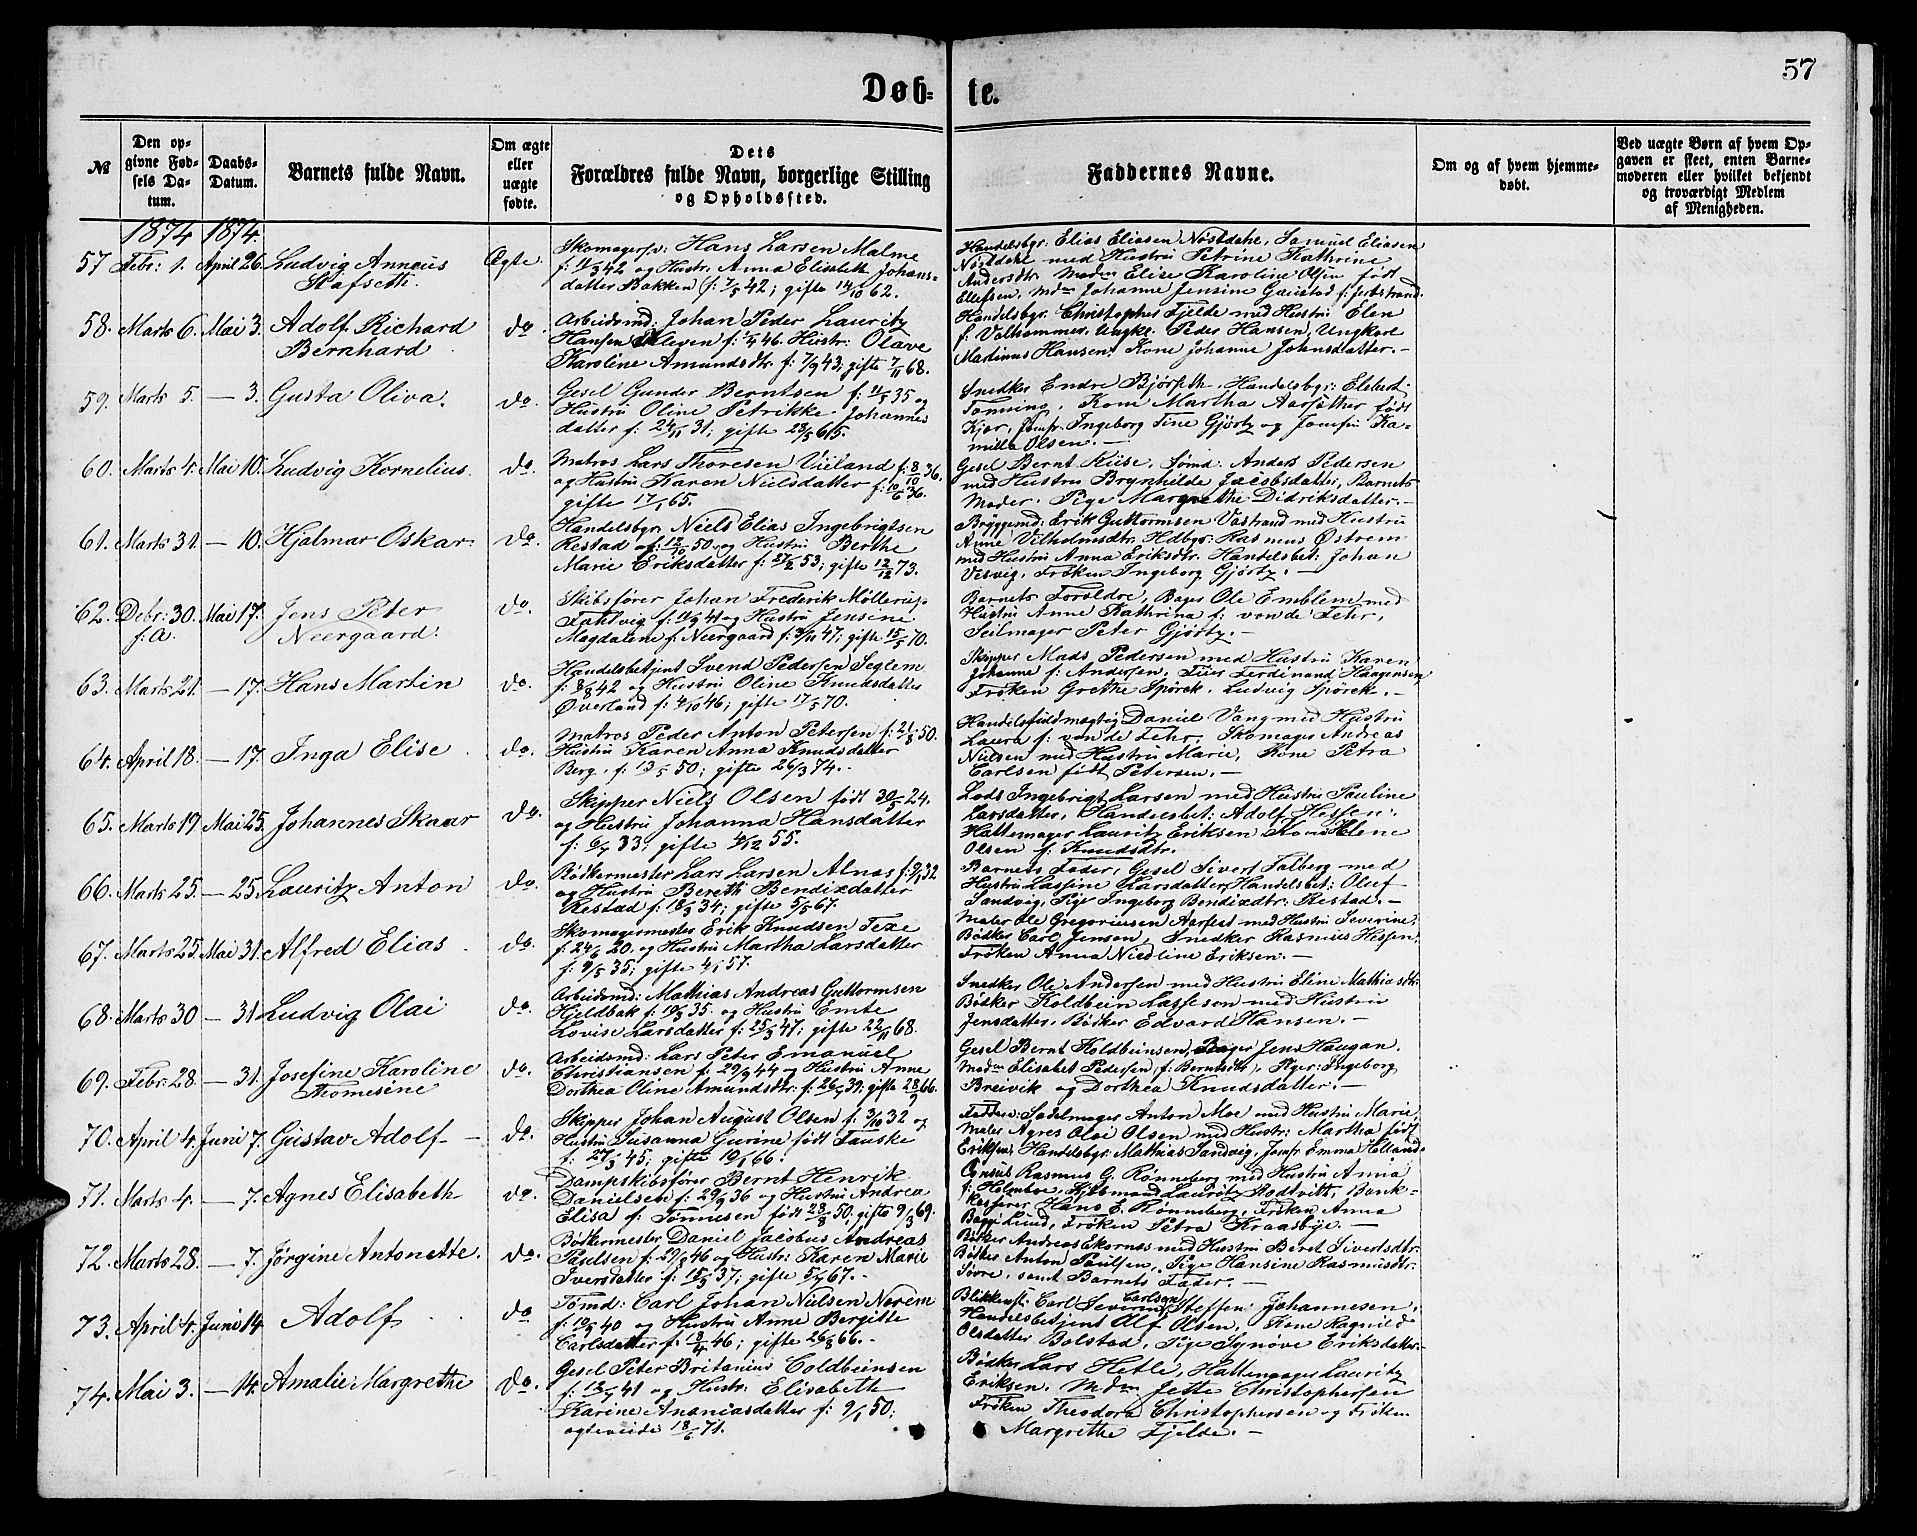 57
Døb- te.
№
Den opgivne Fødsels Datum.
Daabs-Datum.
Barnets fulde Navn.
Om ægte eller uægte fødte.
Dets Forældres fulde Navn, borgerlige Stilling og Opholdssted.
Faddernes Navne.
Om og af hvem hjemmedøbt.
Ved uægte Børn af hvem Opgaven er skeet, enten Barnemoderen eller hvilket bekjendt og troværdigt Medlem af Menigheden.
1874 1874.
57 Febr: 1. April 26. Ludvig Anneus
Stafseth.
Ægte.
Skomagersv: Hans Larsen Malme
og Hustr: Anna Elisabeth Johans-
datter Bakken f: 7/5 42; gifte 14/10 62.
Handelsbgr: Elias Eliasen Nøstdahl, Samuel Eliasen
Nøstdahl med Hustru Petrine Kathrine
Andersdtr Madm Elise Karoline Olsen født
Ellefsen, Mdm Johanne Jensine Gaustad f: Jertstrand.
58. Marts 6. Mai 3. Adolf Richard
Bernhard
do.
Arbeidsmd: Johan Peder Lauritz
Hansen Kleven 46. Hustr: Olave
Karoline Amundsdtr. f: 7/9 43; gifte 7/11 68.
Handelsbgr. Christopher Fjelde med Hustru Elen
f. Volhammer, Ungkl. Peder Hansen, Ungkarl
Martinus Hansen, Kone Johanne Johnsdatter.-
59. Marts 5. — 3. Gusta Oliva.
do.
Gesel Gunder Berntsen f: 11/5 35 og
Hustru Oline Petrikke Johannes
datter f: 24/11 31; gifte 28/5 65.
Snedker Endre Bjørseth, Handelsbgr: Elebert
Tønning, Kone Martha Aarsæther født
Kjør, Jomfr: Ingeborg Tine Gjørtz og Jomfru Ka-
milla Olsen.—
60. Marts 4. Mai 10. Ludvig Kornelius.
do.
Matros Lars Thoresen Viiland f: 8/10 36.
og Hustru Karen Nielsdatter f: 10/6 36.
gifte 17/1 65.
Gesel Bernt Riise, Tømd: Anders Pedersen
med Hustru Brynhilde Jacobsdatter, Barnets
Moder, Pige Margrethe Didriksdatter.—
61. Marts 31. — 10. Hjalmar Oskar.
do.
Handelsbgr Niels Elias Ingebrigtsen
Restad f: 12/10 50 og Hustru Berthe
Marie Eriksdatter f: 27/2 53; gifte 12/12 73.
Bryggemd: Erik Guttormsen Vastrand med Hustru
Anne Vilholmsdtr. Hdbgr: Rasmus Østrem
med Hustru Anna Eriksdtr. Handelsbet: Johan
Vesvig, Frøken Ingeborg Gjørtz.—
62. Debr: 30. Mai 17. Jens Peter
f.A. Neergaard.
do.
Skibsfører Johan Frederik Møllerup
Fahtvig f: 19/9 41 og Hustru Jensine
Magdalene f. Neergaard f: 3/11 47; gifte 15/5 70.
Barnets Forældre, Bager Ole Emblem med
Hustru Anne Kathrina f: von de Fehr,
Seilmager Peter Gjørtz.—
63. Marts 21. — 17. Hans Martin
do.
Handelsbetjent Svend Pedersen Seglem
f: 8/8 42 og Hustru Oline Knudsdatter
Øverland f: 4/10 46; gifte 17/5 70.
Skipper Mads Pedersen med Hustru Karen
Johanne f: Andersen, Fuer Ferdinand Haagensen
Frøken Grethe Spörck, Ludvig Spörck.—
64. April 18. — 17. Inga Elise.
do.
Matros Peder Anton Petersen f: 21/8 50.
Hustru Karen Anna Knudsdatter
Berg, f: 13/5 50; gifte 26/3 74.-
Handelsfuldmægtig Daniel Vang med Hustru
Laura f: von de Fehr, Skomager Andreas
Nielsen med Hustru Marie, Kone Petra
Carlsen født Petersen.—
65. Marts 19. Mai 25. Johannes Skaar
do.
Skipper Niels Olsen født 30/5 24.
og Hustru Johanna Hansdatter
f: 9/7 33; gifte 4/12 55.
Lods Ingebrigt Larsen med Hustru Pauline
Larsdatter, Handelsbet: Adolf Hessen,
Hattemager Lauritz Eriksen Kone Helene
Olsen f: Knudsdtr.
66. Marts 25. — 25. Lauritz Anton
do.
Bødkermester Lars Larsen Alnæs f: 9/1 32
og Hustru Bereth Bendixdatter
Restad f: 18/3 34; gifte 5/5 67.
Barnets Fader, Gesel Sivert Falberg med
Hustru Lassine Larsdatter, Handelsbet: Oluf
Sandvig, Pige Ingeborg Bendixdtr. Restad.—
67. Marts 25. Mai 31. Alfred Elias.
do.
Skomagermester Erik Knudsen Fexe
f: 24/6 20. og Hustru Martha Larsdatter
f: 9/5 35; gifte 4/1 57.
Maler Ole Gregoriusen Aarset med Hustru Severine,
Bødker Carl Jensen, Snedker Rasmus Hessen,
Frøken Anna Nicoline Eriksen.—
68. Marts 30 — 31 Ludvig Olai
do.
Arbeidsmd: Mathias Andreas Guttormsen
Hjeldbak f: 19/3 35. og Hustru Emte
Lovise Larsdatter f: 25/3 47; gifte 22/11 68.
Snedker Ole Andersen med Hustru Eline Mathiasdtr.
Bødker Koldbein Lasseson med Hustru
Jensdatter, Bødker Edvard Hansen.—
69. Febr: 28. — 31. Josefine Karoline
Thomesine
do.
Arbeidsmd: Lars Peter Emanuel
Christiansen f: 29/9 44 og Hustru Anne
Dorthea Oline Amundsdtr: f: 26/7 39; gifte 28/9 66.
Gesel Bernt Koldbeinsen, Bager Jens Haugan,
Madm Elisabet Pedersen f: Berntsdtr, Piger: Ingeborg
Breivik og Dorthea Knudsdatter.—
70. April 4. Juni 7. Gustav Adolf —
do.
Skipper Johan August Olsen f: 3/10 32 og
Hustru Susanna Gurine født Fauske
f: 27/3 45; gifte 19/1 66.
Faddere: Sadelmager Anton Moe med Hustru Marie,
Maler Agnes Olai Olsen med Hustr: Martha født
Eriksen, Handelsbgr: Mathias Sandvig, Jomfr: Emma Holland.
71. Marts 4. — 7. Agnes Elisabeth
do.
Dampskibsfører Bernt Henrik
Danielsen f: 29/9 36 og Hustru Andrea
Elisa f: Tønnesen født 28/8 50; gifte 9/3 69.
Consul Rasmus G. Rønneberg med Hustru Anna
f: Holmboe, Kjøbmand Lauritz Rodtvitt, Bank-
kasserer Hans E. Rønneberg, Frøken Anna
Bagge Lund, Frøken Petra Kraasbye.—
72. Marts 28. — 7. Jørgine Antonette.
do.
Bødkermester Daniel Jacobus Andreas
Paulsen f: 29/8 46 og Hustr: Karen Marie
Iversdatter f: 15/3 37; gifte 5/7 67.-
Bødker Andreas Ekornæs med Hustru Beret Sivertsdtr.
Bødker Anton Paulsen, Pige Hansine Rasmusdtr.
Søvre, samt Barnets Fader.—
73. April 4. Juni 14 Adolf
do.
Tømd: Carl Johan Nielsen Nerem
f: 19/5 40 og Hustru Anne Bergitte
Carlsdatter f: 18/4 46; gifte 26/8 66.-
Blikkensl: Carl Severin Carlsen, Steffen Johannesen,
Handelsbetjent Alf Olsen, Kone Ragnilde
Olsdatter Bolstad, Pige Synøve Eriksdatter.—
74. Mai 3. — 14. Amalie Margrethe
do.
Gesel Peter Britanius Coldbeinsen
f: 13/7 41 og Hustr: Elisabeth
Karine Ananiasdatter f: 9/1 50;
ægteviede 18/6 71.
Bødker Lars Hetle, Hattemager Lauritz
Eriksen, Mdm Jette Christophersen
Frøken Theodora Christophersen og Frøken
Margrethe Fjelde.—